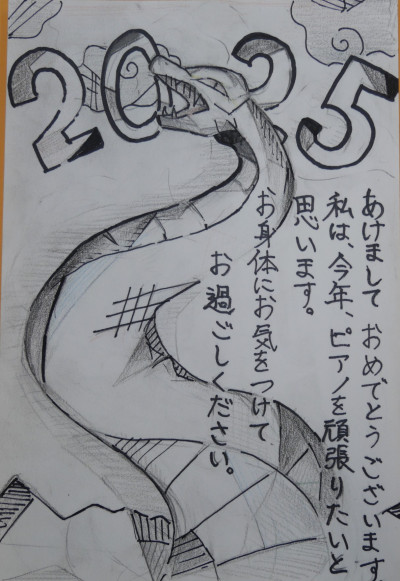 2025
あけまして おめでとうございます。
私は、今年、ピアノを頑張りたいと
思います。
お身体にお気をつけて
お過ごしください。